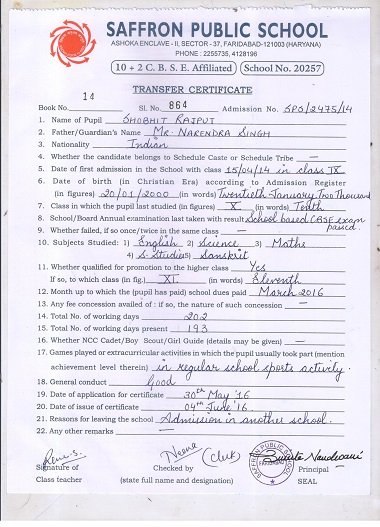 SAFFRON PUBLIC SCHOOL
ASHOKA ENCLAVE - II, SECTOR - 37, FARIDABAD-121003 (HARYANA)
PHONE : 2255735, 4128196
10 + 2 C. B. S. E. Affiliated School No. 20257
TRANSFER CERTIFICATE
Book No. 14 Sl. No. 864 Admission No. SPS/2975/14
1. Name of Pupil SHOBHIT RAJPUT
2. Father/Guardian's Name MR. NARENDRA SINGH
3. Nationality Indian
4. Whether the candidate belongs to Schedule Caste or Schedule Tribe —
5. Date of first admission in the School with class 15/04/14 in class IX
6. Date of birth (in Christian Era) according to Admission Register
(in figures) 20/01/2000 (in words) Twentieth January Two Thousand
7. Class in which the pupil last studied (in figures) X (in words) Tenth
8. School/Board Annual examination last taken with result School based CBSE exam passed.
9. Whether failed, if so once/twice in the same class —
10. Subjects Studied: 1) English 2) Science 3) Maths
4) S. Studies 5) Sanskrit
11. Whether qualified for promotion to the higher class Yes
If so, to which class (in fig.) XI (in words) Eleventh
12. Month up to which the (pupil has paid) school dues paid March 2016
13. Any fee concession availed : if so, the nature of such concession —
14. Total No. of working days 202
15. Total No. of working days present 193
16. Whether NCC Cadet/Boy Scout/Girl Guide (details may be given) —
17. Games played or extracurricular activities in which the pupil usually took part (mention
achievement level therein) in regular school sports activity
18. General conduct Good
19. Date of application for certificate 30th May '16
20. Date of issue of certificate 04th June '16
21. Reasons for leaving the school Admission in another school.
22. Any other remarks —
Neena (Clerk)
Signature of Checked by Principal
Class teacher (state full name and designation) SEAL